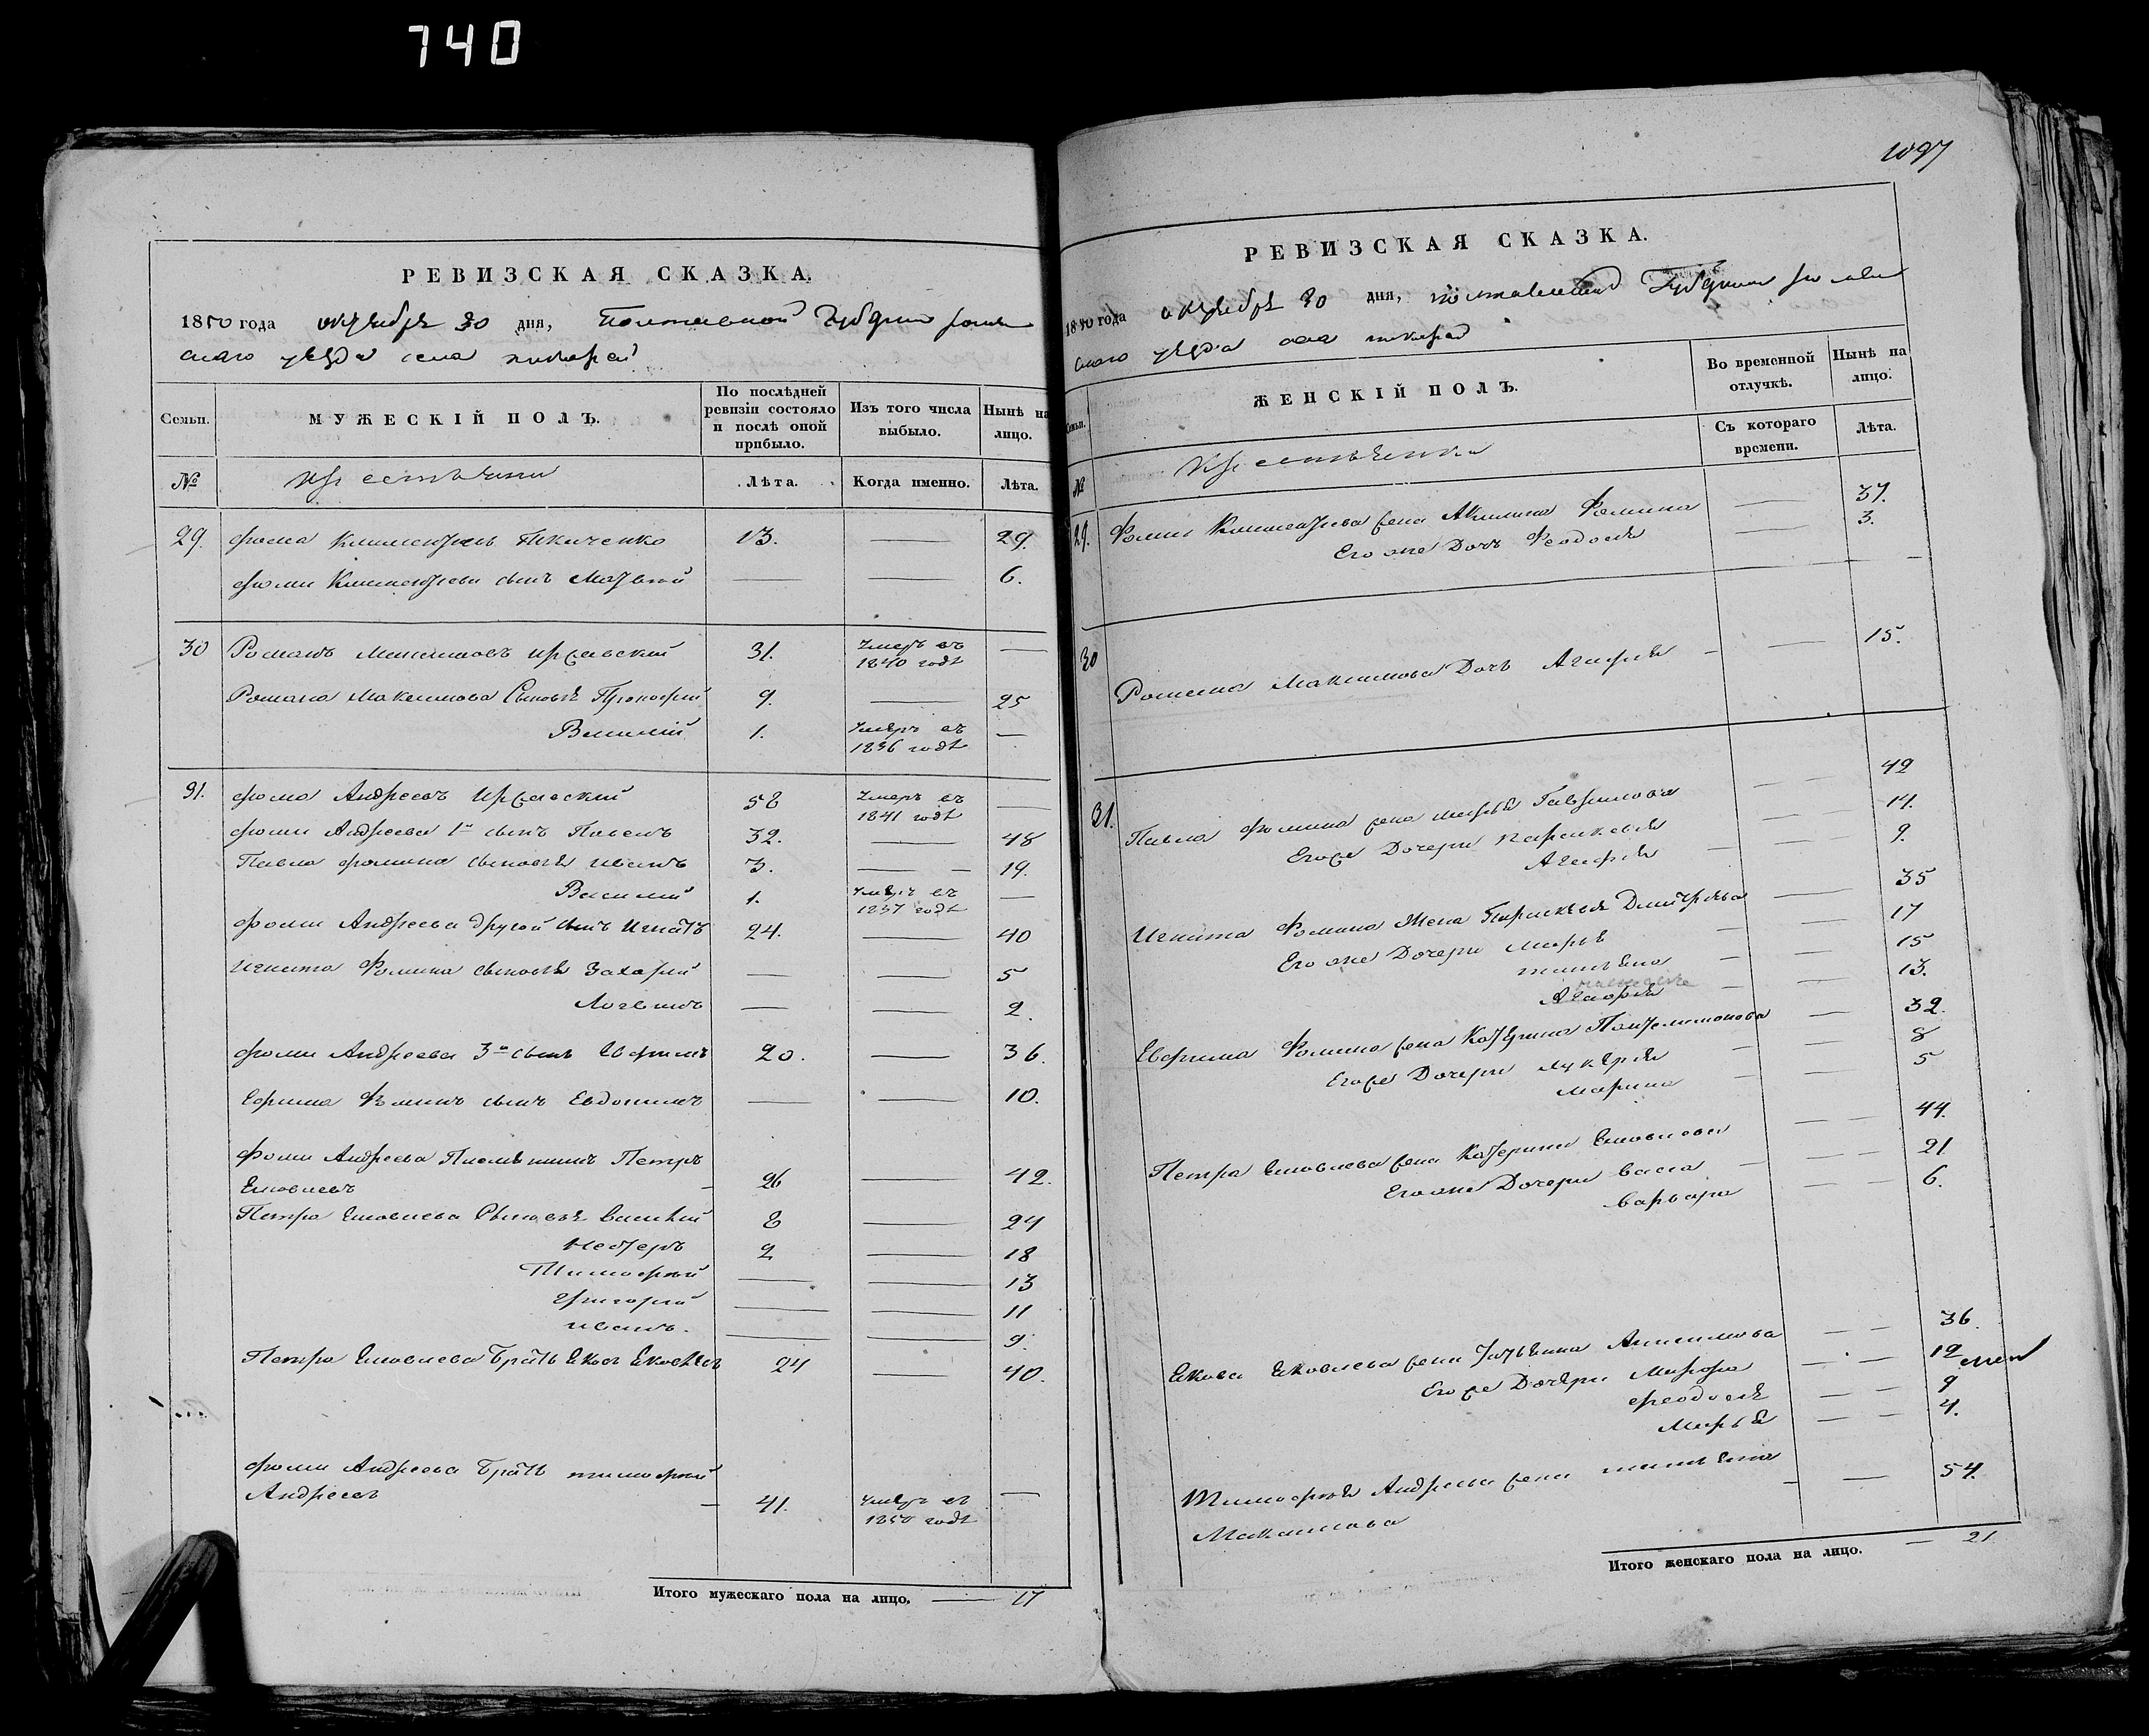 740
РЕВИЗСКАЯ СКАЗКА.
1850 года октября 30 дня, Полтавской Губернии
скаго уезда села
Семьи.
МУЖЕСКІЙ ПОЛЪ.
По послѣдней ревизіи состояло и послѣ оной прибыло.
Изъ того числа выбыло.
Нынѣ на лицо.
№
Лѣта.
Когда именно.
Лѣта.
29. Фома Климентіевъ Ткаченко 13. — 29.
Фомы Климентіева сынъ Матвѣй — — 6.
30 Романъ Максимовъ 31. Умеръ въ 1840 годѣ —
Романа Максимова Сыновья Прокофій 9. — 25
Василій 1. Умеръ въ 1836 годѣ —
31. Фома Андреевъ 58 Умеръ въ 1841 годѣ —
Фомы Андреева 1й сынъ Павелъ 32. — 48
Павла Фомина сыновья Иванъ 3. — 19.
Василій 1. Умеръ въ 1837 годѣ —
Фомы Андреева другой сынъ Игнатъ 24. — 40
Игната Фомина сыновья Захарій — — 5
Логвинъ — — 2.
Фомы Андреева 3й сынъ Евфимъ 20. — 36.
Ефима Фомина сынъ Евдокимъ — — 10.
Фомы Андреева Племянникъ Петръ
Яковлевъ 26 — 42.
Петра Яковлева Сыновья Василій 8 — 24
Несторъ 2 — 18
Тимофей — — 13
Григорій — — 11
Иванъ. — — 9.
Петра Яковлева Братъ Яковъ Яковлевъ 24 — 40.
Фомы Андреева Братъ Тимофей
Андреевъ — 41. Умеръ въ 1850 годѣ —
Итого мужескаго пола на лицо. — 17
1097
РЕВИЗСКАЯ СКАЗКА.
1850 года октября 30 дня, Полтавской Губернии
скаго уезда села
Семьи.
ЖЕНСКІЙ ПОЛЪ.
Во временной отлучкѣ.
Нынѣ на лицо.
№
Съ котораго времени.
Лѣта.
29. Фомы Климентіева жена Акилина Фомина — 37.
Его же Дочь Феодосія — 3.
30 Романа Максимова Дочь Агафія — — 15.
31. Павла Фомина жена Марья Гаврилова — — 42
Егоже Дочери Параскевія — — 14.
Агафія — — 9.
Игната Фомина Жена Параскевія Дмитріева — 35
Его же Дочери Марья — — 17
Татьяна — — 15
Агафія — — 13.
Евфима Фомина жена Катерина Пантелимонова — 32.
Егоже Дочери Лукерія — — 8
Марина — — 5
Петра Яковлева жена Катерина Яковлева — — 44.
Егоже Дочери Васса — — 21
Варвара — — 6.
Якова Яковлева жена Ульяна Анисимова — — 36.
Егоже Дочери Марфа — — 12
Феодосія — — 9
Марья — — 4.
Тимофея Андреева жена Татьяна
Максимова — — 54.
Итого женскаго пола на лицо. — 21